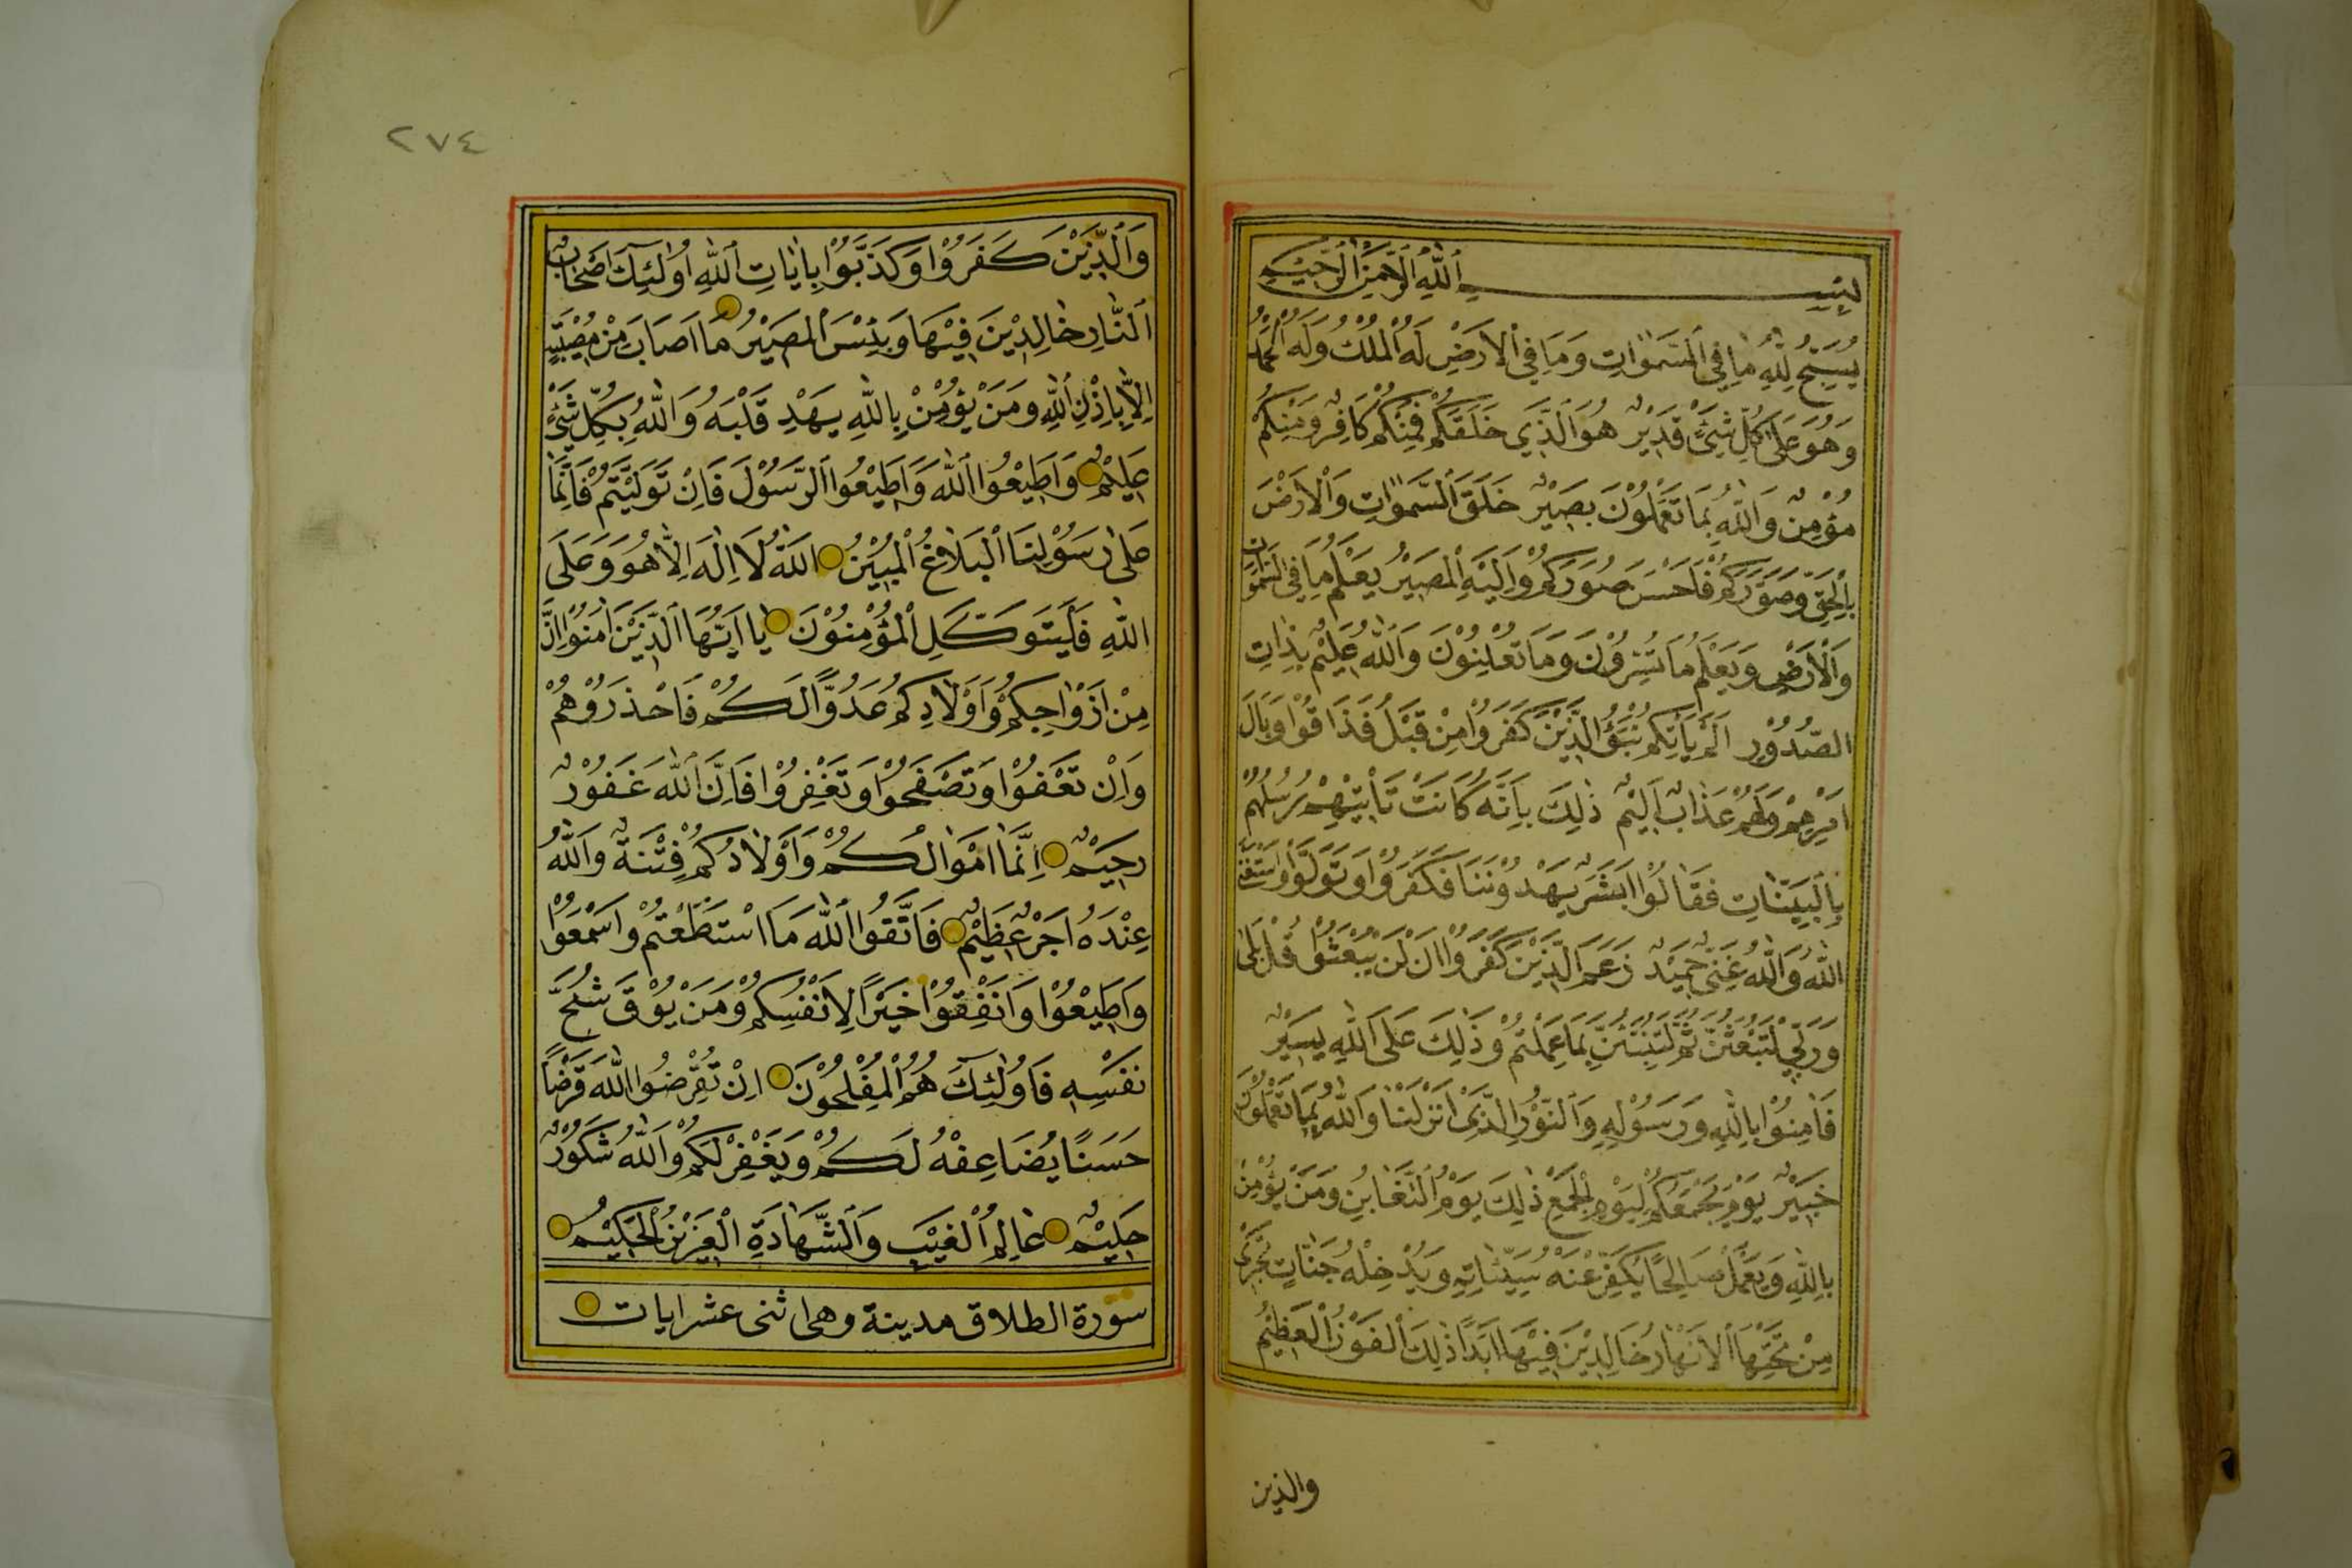 بِسْــــــمِ ٱللّٰهِ ٱلرَّحْمٰنِ ٱلرَّحِيْمِ
يُسَبِّحُ لِلّٰهِ مَا فِي ٱلسَّمٰوَاتِ وَمَا فِي ٱلْاَرْضِ لَهُ ٱلْمُلْكُ وَلَهُ ٱلْحَمْدُ
وَهُوَ عَلٰى كُلِّ شَيْئٍ قَدِيْرٌ هُوَ ٱلَّذِي خَلَقَكُمْ فَمِنْكُمْ كَافِرٌ وَمِنْكُمْ
مُؤْمِنٌ وَاللّٰهُ بِمَا تَعْمَلُوْنَ بَصِيْرٌ خَلَقَ ٱلسَّمٰوَاتِ وَٱلْاَرْضَ
بِٱلْحَقِّ وَصَوَّرَكُمْ فَاَحْسَنَ صُوَرَكُمْ وَاِلَيْهِ ٱلْمَصِيْرُ يَعْلَمُ مَا فِي ٱلسَّمٰوَاتِ
وَٱلْاَرْضِ وَيَعْلَمُ مَا تُسِرُّوْنَ وَمَا تُعْلِنُوْنَ وَٱللّٰهُ عَلِيْمٌ بِذَاتِ
الصُّدُوْرِ اَلَمْ يَأْتِكُمْ نَبَؤُ الَّذِيْنَ كَفَرُوْا مِنْ قَبْلُ فَذَاقُوْا وَبَالَ
اَمْرِهِمْ وَلَهُمْ عَذَابٌ اَلِيْمٌ ذٰلِكَ بِاَنَّهُ كَانَتْ تَأْتِيْهِمْ رُسُلُهُمْ
بِٱلْبَيِّنَاتِ فَقَالُوْا اَبَشَرٌ يَهْدُوْنَنَا فَكَفَرُوْا وَتَوَلَّوْا وَاسْتَغْنَى
اللّٰهُ وَاللّٰهُ غَنِيٌّ حَمِيْدٌ زَعَمَ الَّذِيْنَ كَفَرُوْا اَنْ لَنْ يُبْعَثُوْا قُلْ بَلٰى
وَرَبِّي لَتُبْعَثُنَّ ثُمَّ لَتُنَبَّئُنَّ بِمَا عَمِلْتُمْ وَذٰلِكَ عَلَى اللّٰهِ يَسِيْرٌ
فَاٰمِنُوْا بِاللّٰهِ وَرَسُوْلِهِ وَٱلنُّوْرِ الَّذِيْ اَنْزَلْنَا وَاللّٰهُ بِمَا تَعْمَلُوْنَ
خَبِيْرٌ يَوْمَ يَجْمَعُكُمْ لِيَوْمِ ٱلْجَمْعِ ذٰلِكَ يَوْمُ ٱلتَّغَابُنِ وَمَنْ يُؤْمِنْ
بِاللّٰهِ وَيَعْمَلْ صَالِحًا يُكَفِّرْ عَنْهُ سَيِّئَاتِهِ وَيُدْخِلْهُ جَنَّاتٍ تَجْرِى
مِنْ تَحْتِهَا ٱلْاَنْهَارُ خَالِدِيْنَ فِيْهَا اَبَدًا ذٰلِكَ ٱلْفَوْزُ ٱلْعَظِيْمُ
والذين
٢٧٤
وَٱلَّذِيْنَ كَفَرُوْا وَكَذَّبُوْا بِاٰيَاتِ ٱللّٰهِ اُولٰئِكَ اَصْحَابُ
اَلنَّارِ خَالِدِيْنَ فِيْهَا وَبِئْسَ ٱلْمَصِيْرُ مَا اَصَابَ مِنْ مُصِيْبَةٍ
اِلَّا بِاِذْنِ ٱللّٰهِ وَمَنْ يُؤْمِنْ بِاللّٰهِ يَهْدِ قَلْبَهُ وَاللّٰهُ بِكُلِّ شَيْئٍ
عَلِيْمٌ وَاَطِيْعُوا ٱللّٰهَ وَاَطِيْعُوا ٱلرَّسُوْلَ فَاِنْ تَوَلَّيْتُمْ فَاِنَّمَا
عَلٰى رَسُوْلِنَا ٱلْبَلَاغُ ٱلْمُبِيْنُ اَللّٰهُ لَا اِلٰهَ اِلَّا هُوَ وَعَلَى
اللّٰهِ فَلْيَتَوَكَّلِ ٱلْمُؤْمِنُوْنَ يَا اَيُّهَا ٱلَّذِيْنَ اٰمَنُوْا اِنَّ
مِنْ اَزْوَاجِكُمْ وَاَوْلَادِكُمْ عَدُوًّا لَكُمْ فَاحْذَرُوْهُمْ
وَاِنْ تَعْفُوْا وَتَصْفَحُوْا وَتَغْفِرُوْا فَاِنَّ ٱللّٰهَ غَفُوْرٌ
رَحِيْمٌ اِنَّمَا اَمْوَالُكُمْ وَاَوْلَادُكُمْ فِتْنَةٌ وَاللّٰهُ
عِنْدَهُ اَجْرٌ عَظِيْمٌ فَاتَّقُوا ٱللّٰهَ مَا اسْتَطَعْتُمْ وَاسْمَعُوْا
وَاَطِيْعُوْا وَاَنْفِقُوْا خَيْرًا لِاَنْفُسِكُمْ وَمَنْ يُوْقَ شُحَّ
نَفْسِهِ فَاُولٰئِكَ هُمُ ٱلْمُفْلِحُوْنَ اِنْ تُقْرِضُوا اللّٰهَ قَرْضًا
حَسَنًا يُضَاعِفْهُ لَكُمْ وَيَغْفِرْ لَكُمْ وَاللّٰهُ شَكُوْرٌ
حَلِيْمٌ عَالِمُ ٱلْغَيْبِ وَٱلشَّهَادَةِ الْعَزِيْزُ ٱلْحَكِيْمُ
سورة الطلاق مدينة وهى اثنى عشر ايات